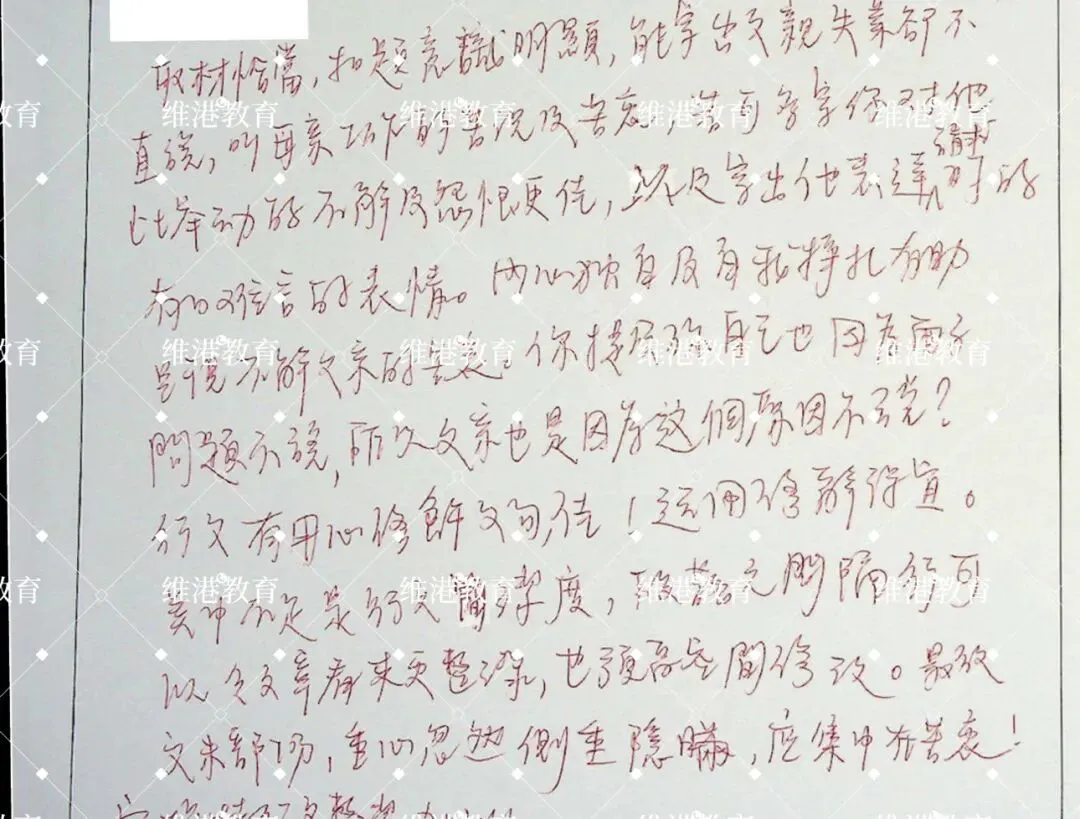 取材恰當，扣題意識明顯，能寫出父親失業卻不
直說，叫母親 的苦況及苦衷，若可多寫你對他
此舉動的不解及怨恨更佳，以及寫出他表達請求時的
有口難言的表情。內心獨白及自我掙扎有助
呈現不解父親的苦衷。你提及 自己也因為面子
問題不說，所以父親也是因為这個原因不說？
行文有用心修飾文句，佳！运用修辭得宜。
美中不足是行文 潔度，段落之間隔行可
以令文章看來更整潔，也預留空間修改。最後
文末部份，重心忽然側重隱瞞，应集中在苦衷！
维港教育